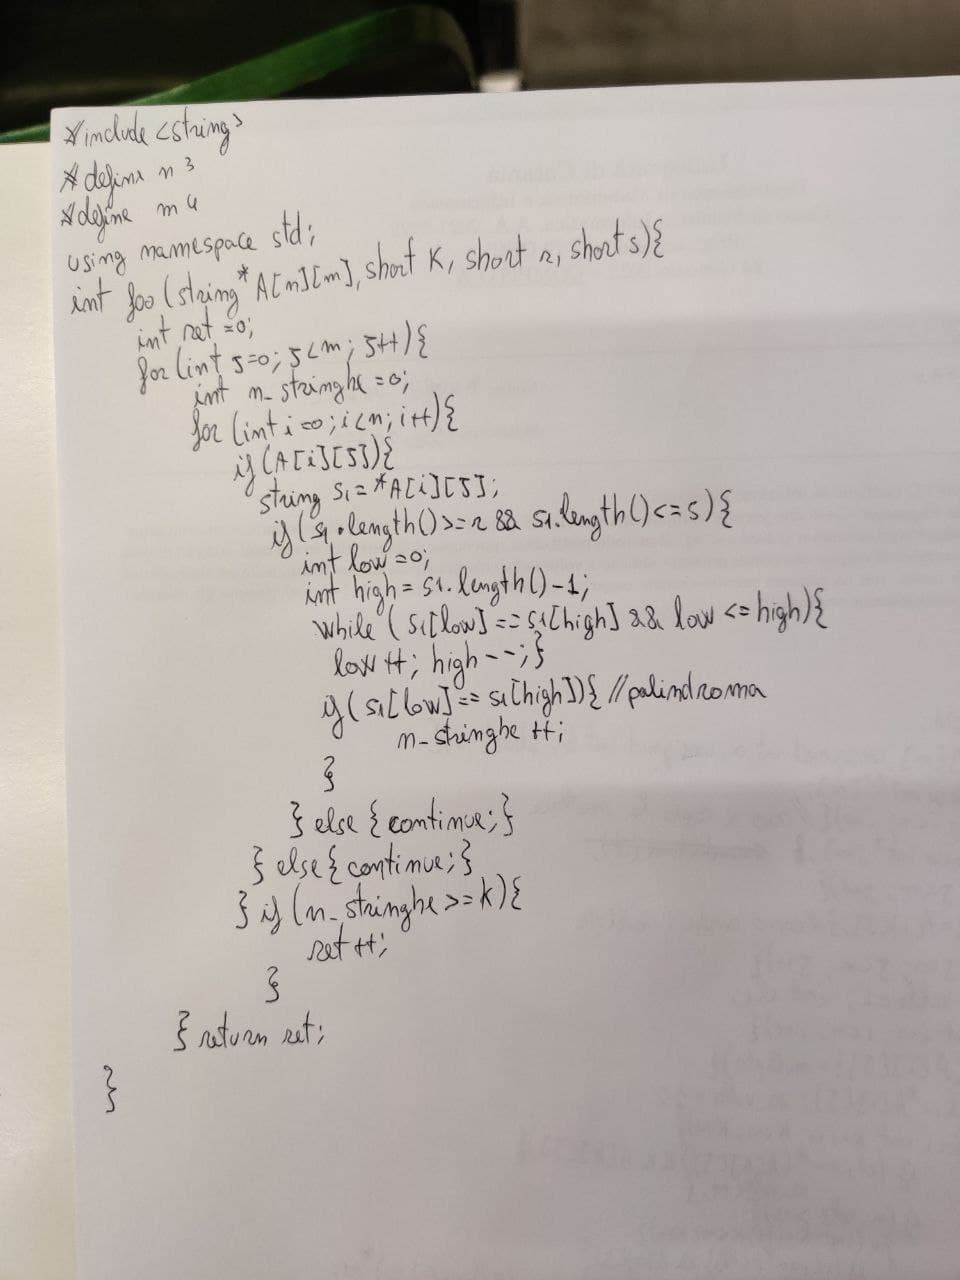 #include <string>
#define n 3
#define m 4
using namespace std;
int foo (string* A[n][m], short K, short r, short s){
int ret =0;
for (int j=0; j<m; j++){
int n_stringhe =0;
for (int i=0; i<n; i++){
if (A[i][j]){
string s1 = *A[i][j];
if (s1.length()>=r && s1.length()<=s){
int low=0;
int high = s1.length()-1;
while (s1[low] == s1[high] && low <= high){
low++; high--;}
if (s1[low]== s1[high]){ //palindroma
n_stringhe ++;
}
} else {continue;}
} else {continue;}
} if (n_stringhe >= K){
ret++;
}
} return ret;
}